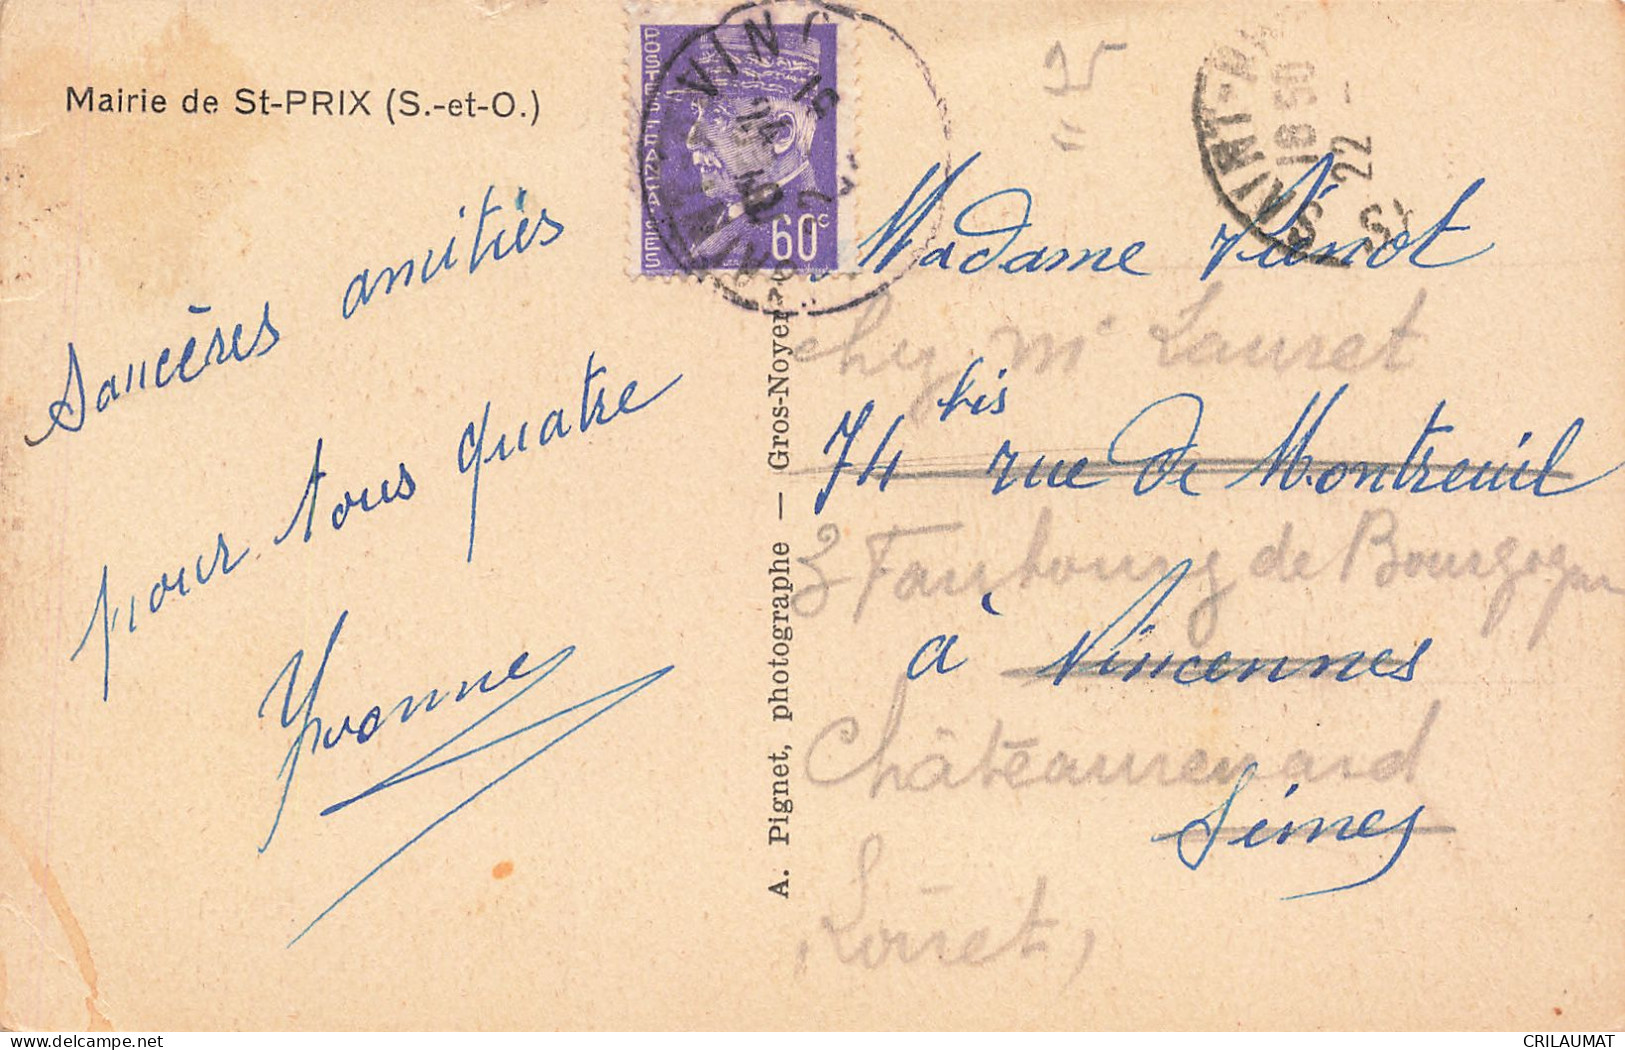 Mairie de St-PRIX (S.-et-O.)
POSTES FRANÇAISES
60c
VINC
SAINT-
18 50
22
25
Sancères amitiés
pour tous quatre
Yvonne
A. Pignet, photographe — Gros-Noyer
Madame
chez Me Lauret
74 bis rue de Montreuil
3 Faubourg de Bourgogne
à Vincennes
Châteaurenard
Seine
Loiret,
delcampe.net
CRILAUMAT